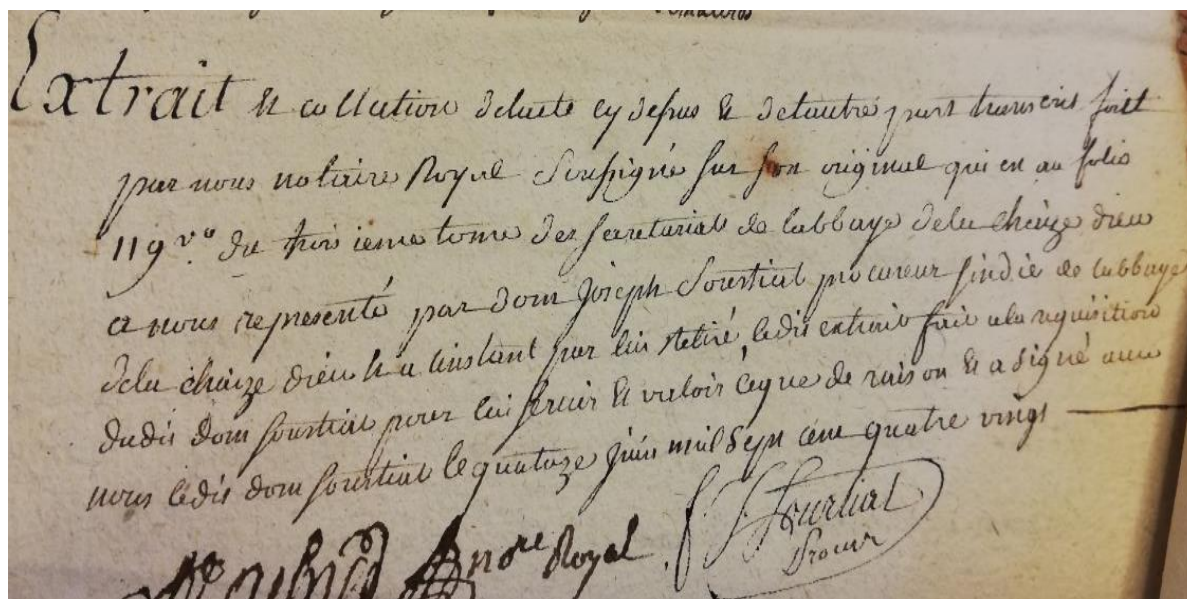 Extrait et collation delacte cy depus et detautre part transcrit fait
par nous notaire Royal soussigné sur son original qui en au folio
119 vo. du troisieme tome des secretariats de labbaye dela chaize dieu
a nous representé par dom joseph Sourtiat procureur sindic de labbaye
dela chaize dieu et a linstant par lui Retiré, ledit extrait fait ala requisition
dudit dom sourtiat pour lui servir et valoir ceque de raison et a signé avec
nous ledit dom sourtiat le quatorze juin mil sept cent quatre vingt
nore Royal.
f J Sourtiat
Procur